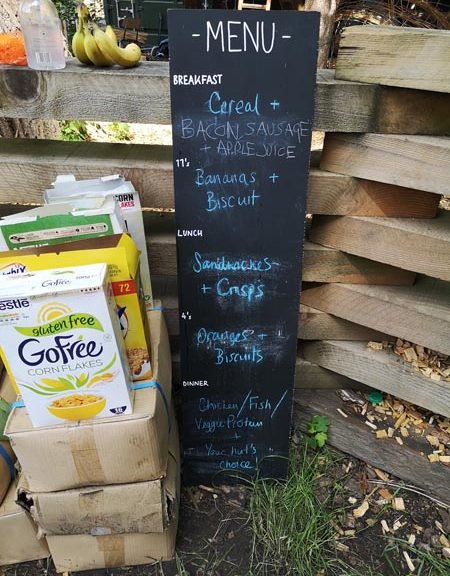 - MENU -
BREAKFAST
Cereal +
BACON, SAUSAGE
+ APPLE JUICE
11's
Bananas +
Biscuit
LUNCH
Sandwiches
+ Crisps
4's
Oranges +
Biscuits
DINNER
Chicken/Fish/
Veggie Protein
+
Your hut's
choice!
CORN
FLAKES
72
GoFree
Nestle
gluten free
GoFree
CORN FLAKES